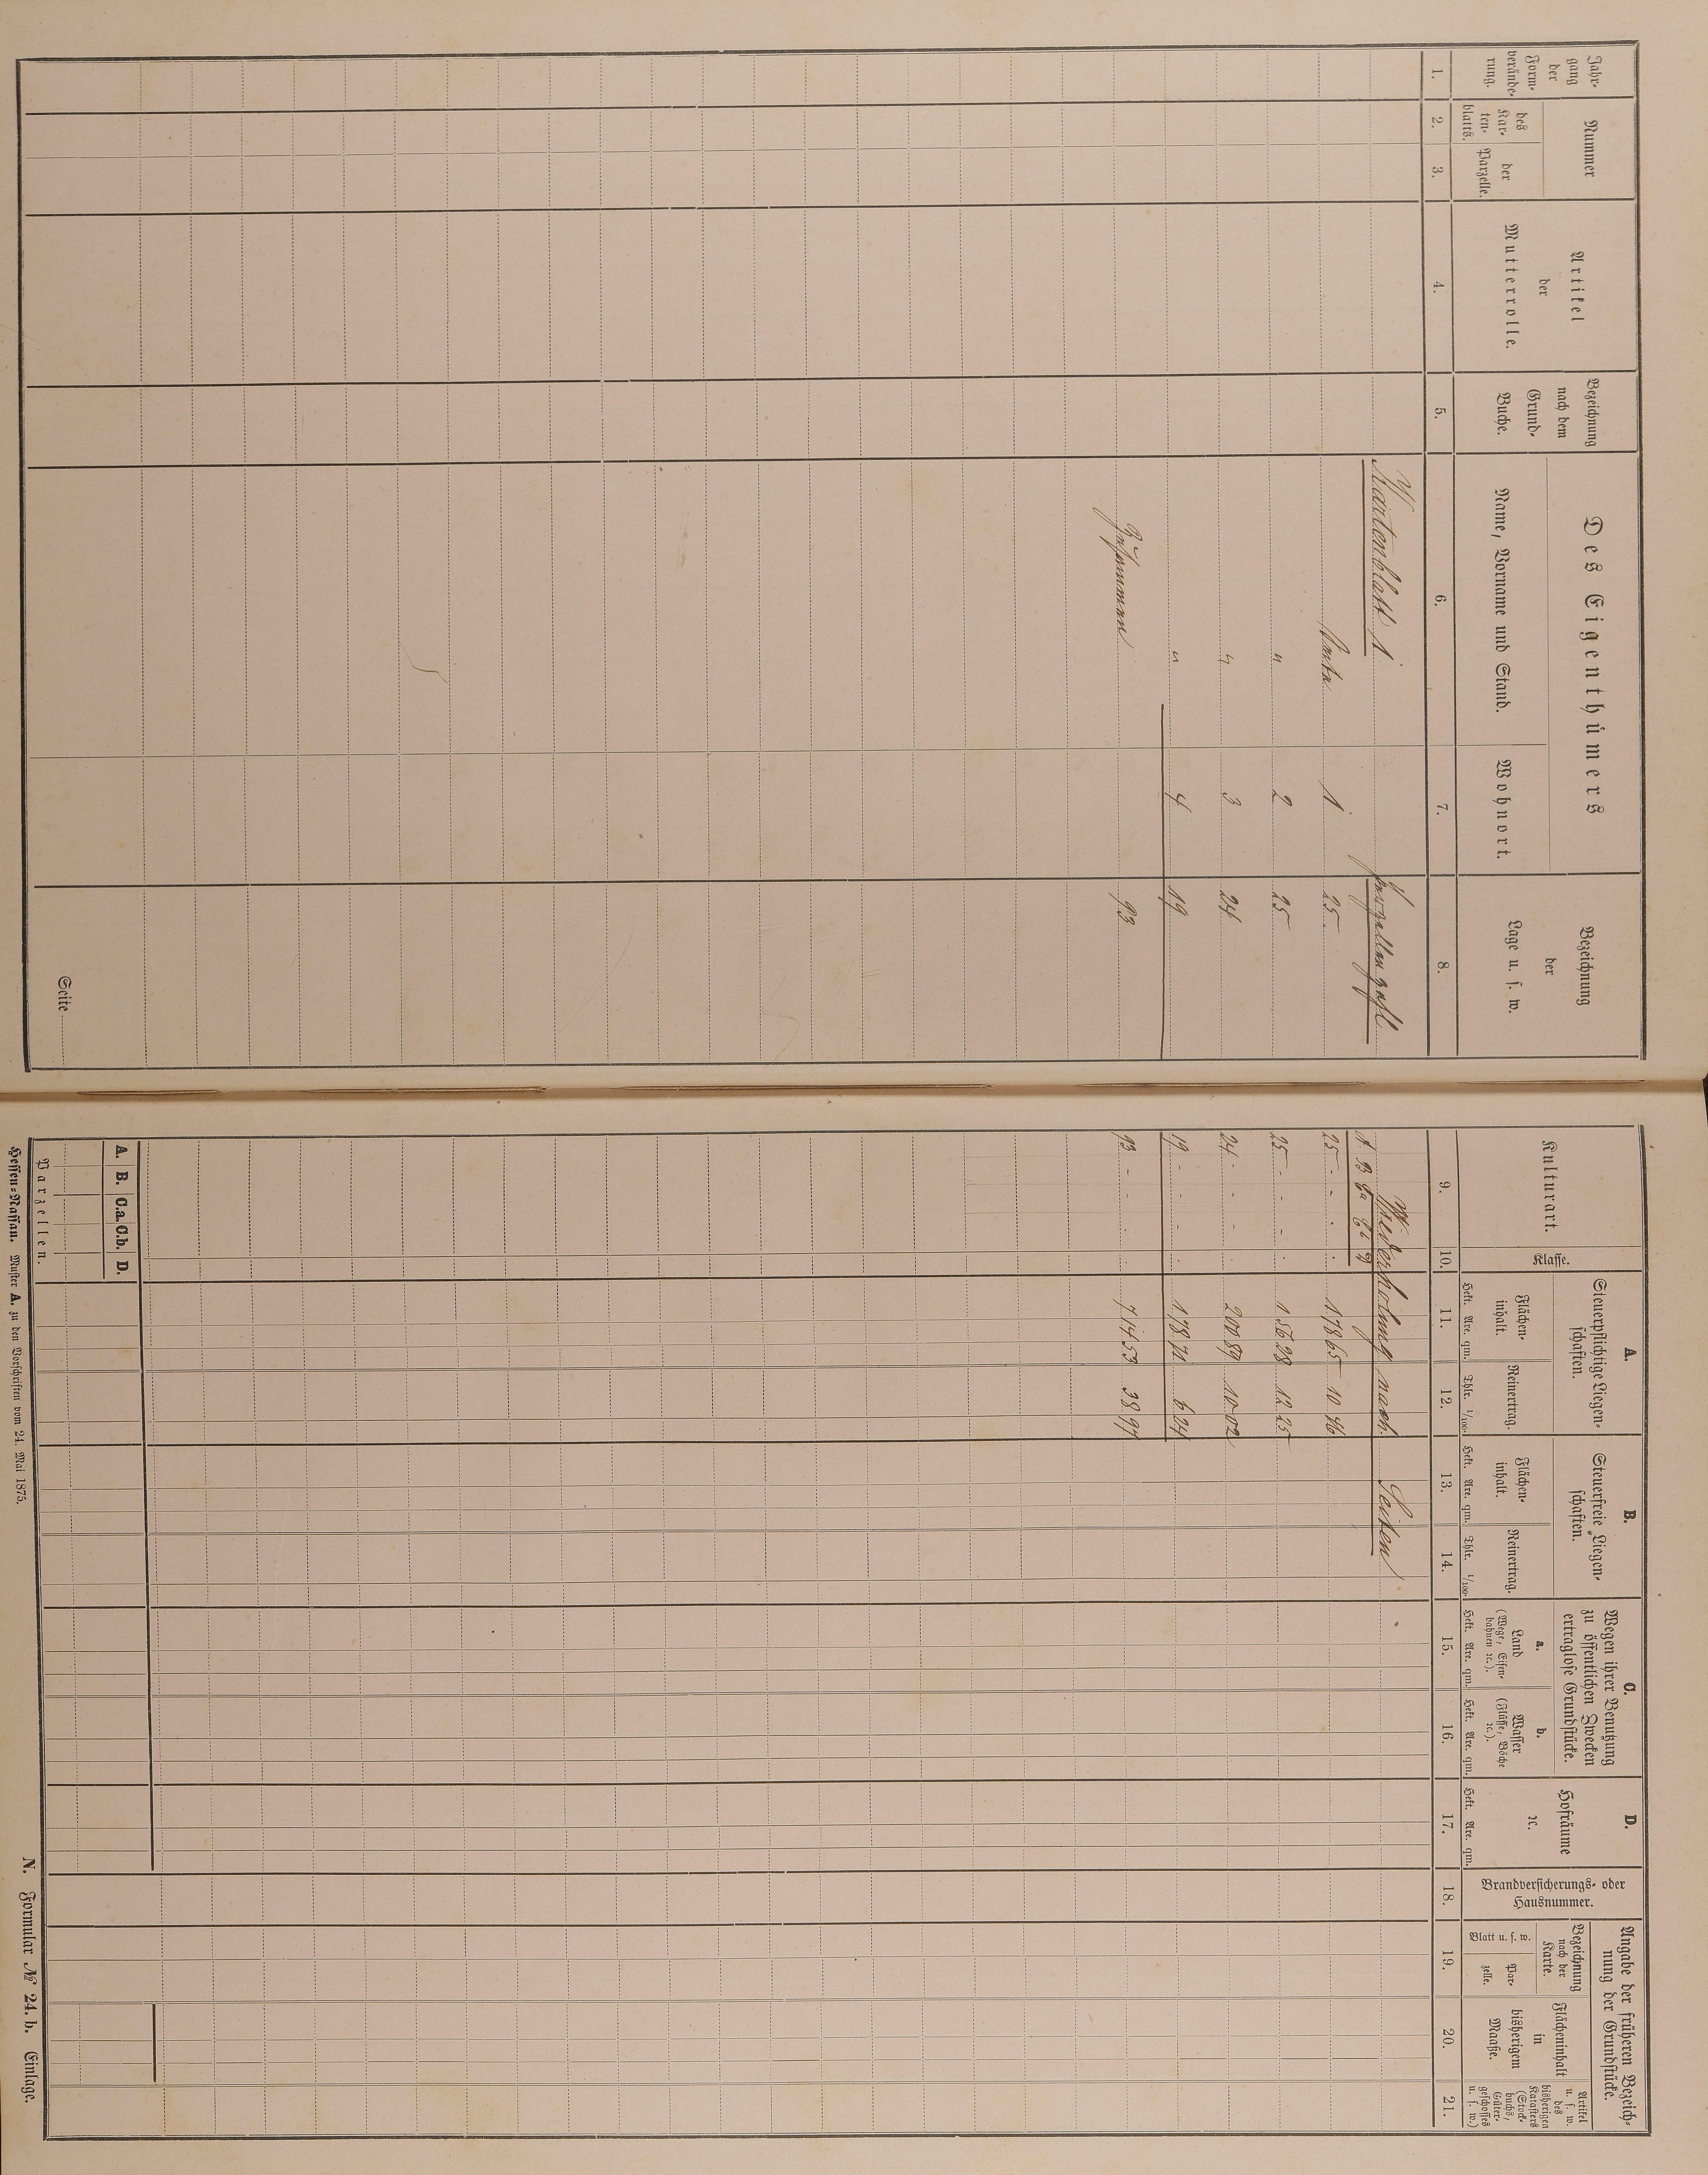 Jahrgang der Formverände-rung.
Nummer
des Kar-ten-blatts.
der Parzelle.
Artikel
der
Mutterrolle.
Bezeichnung
nach dem
Grund-
Buche.
Des Eigenthümers
Name, Vorname und Stand.
Wohnort.
Bezeichnung
der
Lage u. s. w.
1. 2. 3. 4. 5. 6. 7. 8.
Kartenblatt 1. Parzellenzahl
Seite 1 25
" 2 25
" 3 24
" 4 19
Zusammen 93
Seite
Kulturart.
Klasse.
A.
Steuerpflichtige Liegen-
schaften.
Flächen-
inhalt.
Reinertrag.
Hekt. Are. qm. Thlr. 1/100.
B.
Steuerfreie Liegen-
schaften.
Flächen-
inhalt.
Reinertrag.
Hekt. Are. qm. Thlr. 1/100.
C.
Wegen ihrer Benutzung
zu öffentlichen Zwecken
ertraglose Grundstücke.
a.
Land
(Wege, Eisen-
bahnen ꝛc.).
Hekt. Are. qm.
b.
Wasser
(Flüsse, Bäche
ꝛc.).
Hekt. Are. qm.
D.
Hofräume
ꝛc.
Hekt. Are. qm.
Brandversicherungs- oder
Hausnummer.
Angabe der früheren Bezeich-
nung der Grundstücke.
Bezeichnung
nach der
Karte.
Blatt u. s. w.
Par-
zelle.
Flächeninhalt
in
bisherigem
Maaße.
Artikel
des
bisherigen
Katasters
(Stock-
buchs,
Güter-
geschosses
u. s. w.)
9. 10. 11. 12. 13. 14. 15. 16. 17. 18. 19. 20. 21.
Wiederholung nach Seiten
A B Ca Cb D
25 - - - - 1 78 65 10 46
25 - - - - 1 56 28 12 25
24 - - - - 2 00 89 10 02
19 - - - - 1 78 71 6 24
93 - - - - 7 14 53 38 97
A. B. C.a. C.b. D.
Parzellen.
Hessen-Nassau. Muster A. zu den Vorschriften vom 24. Mai 1875.
N. Formular № 24. b. Einlage.